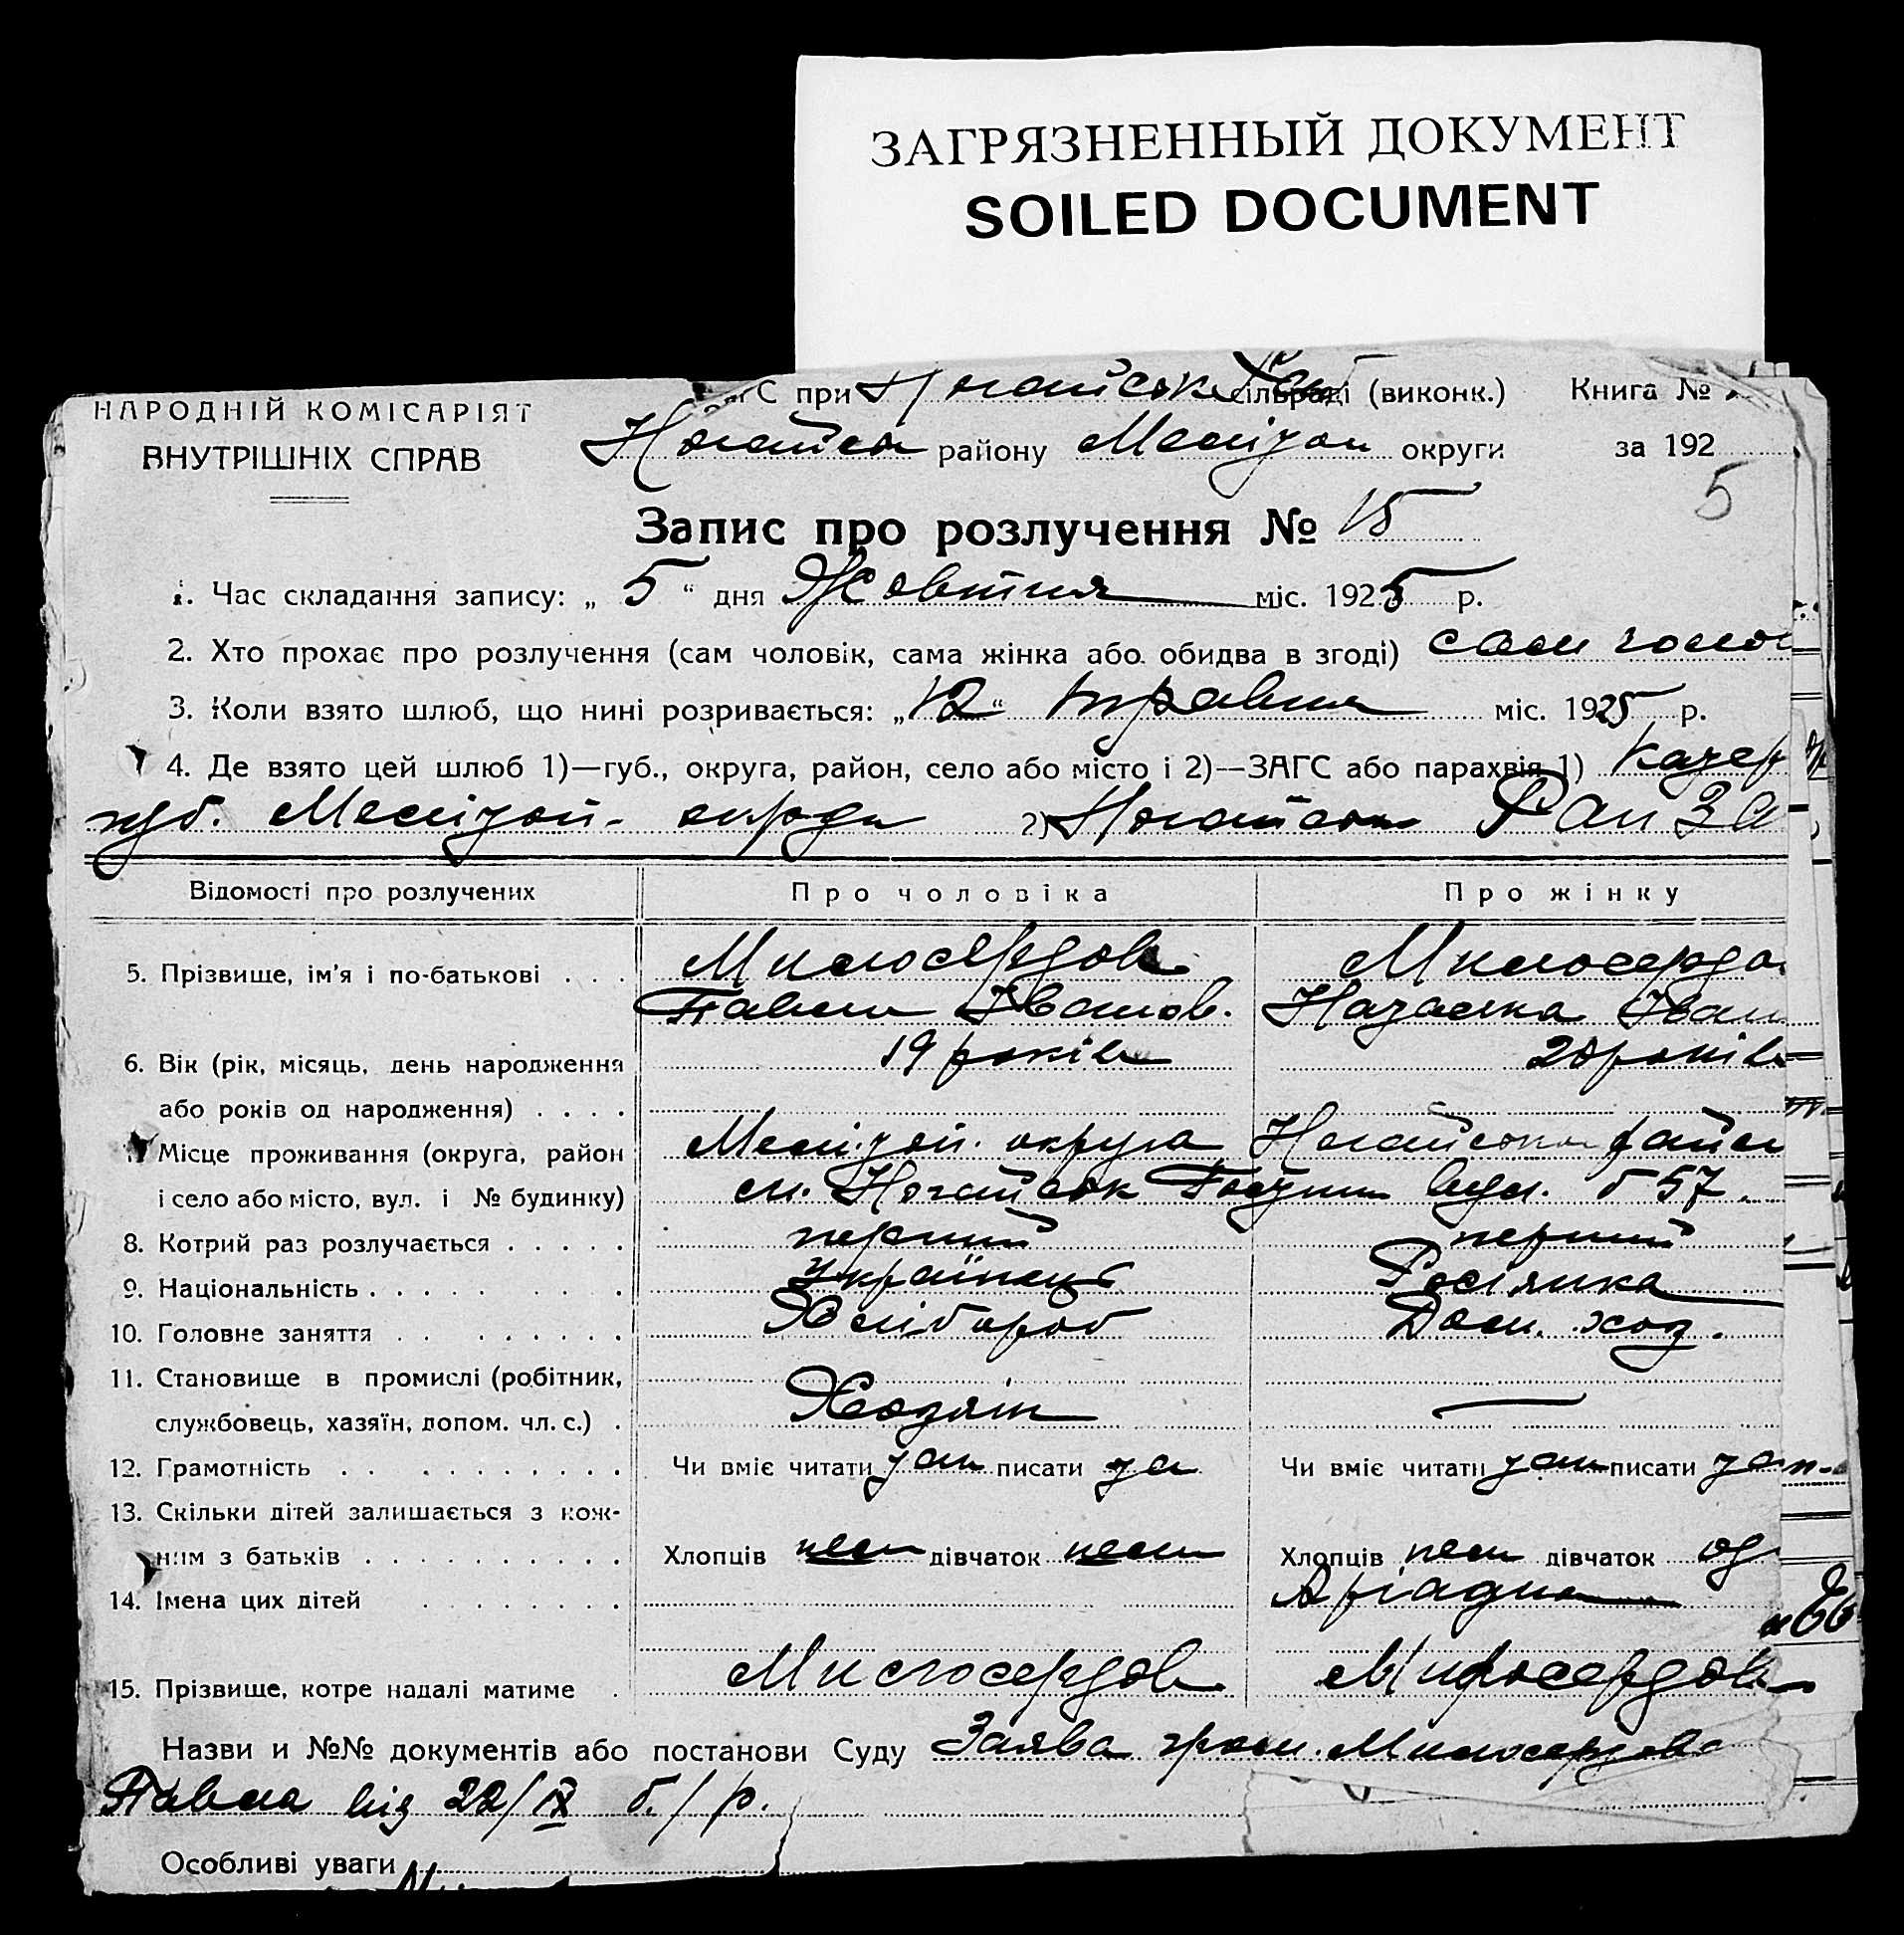 ЗАГРЯЗНЕННЫЙ ДОКУМЕНТ
SOILED DOCUMENT
НАРОДНІЙ КОМІСАРІЯТ
ВНУТРІШНІХ СПРАВ
при Ногайськ сільраді (виконк.) Книга №
району округи за 192
5
Запис про розлучення № 15
1. Час складання запису: „ 5 “ дня Жовтня міс. 1925 р.
2. Хто прохає про розлучення (сам чоловік, сама жінка або обидва в згоді) сам чолов
3. Коли взято шлюб, що нині розривається: „12“ травня міс. 1925 р.
4. Де взято цей шлюб 1)—губ., округа, район, село або місто і 2)—ЗАГС або парахвія 1)
губ. МеліTоп. округи 2) Ногайськ
Відомості про розлучених Про чоловіка Про жінку
5. Прізвище, ім’я і по-батькові . . . Милосердов Милосердо
Павло Іванов. Іван
6. Вік (рік, місяць, день народження 19 років років
або років од народження) . . . .
Місце проживання (округа, район округа Ногайськ район
і село або місто, вул. і № будинку) м. Ногайськ вул. б 57.
8. Котрий раз розлучається . . . . . перший перший
9. Національність . . . . . українець Росіянка
10. Головне заняття . . . . . . . . Хлібороб Дом. хоз.
11. Становище в промислі (робітник,
службовець, хазяїн, допом. чл. с.) . Хозяїн —
12. Грамотність . . . . . . . . . Чи вміє читати писати да Чи вміє читати писати
13. Скільки дітей залишається з кож-
ним з батьків . . . . . . . . . . . Хлопців нема дівчаток нема Хлопців нема дівчаток од
14. Імена цих дітей . . . . . . . . Аріадна
15. Прізвище, котре надалі матиме . Милосердов Милосердов
Назви и №№ документів або постанови Суду Заява гром. Милосердова
Павла від 22/IX б./р.
Особливі уваги